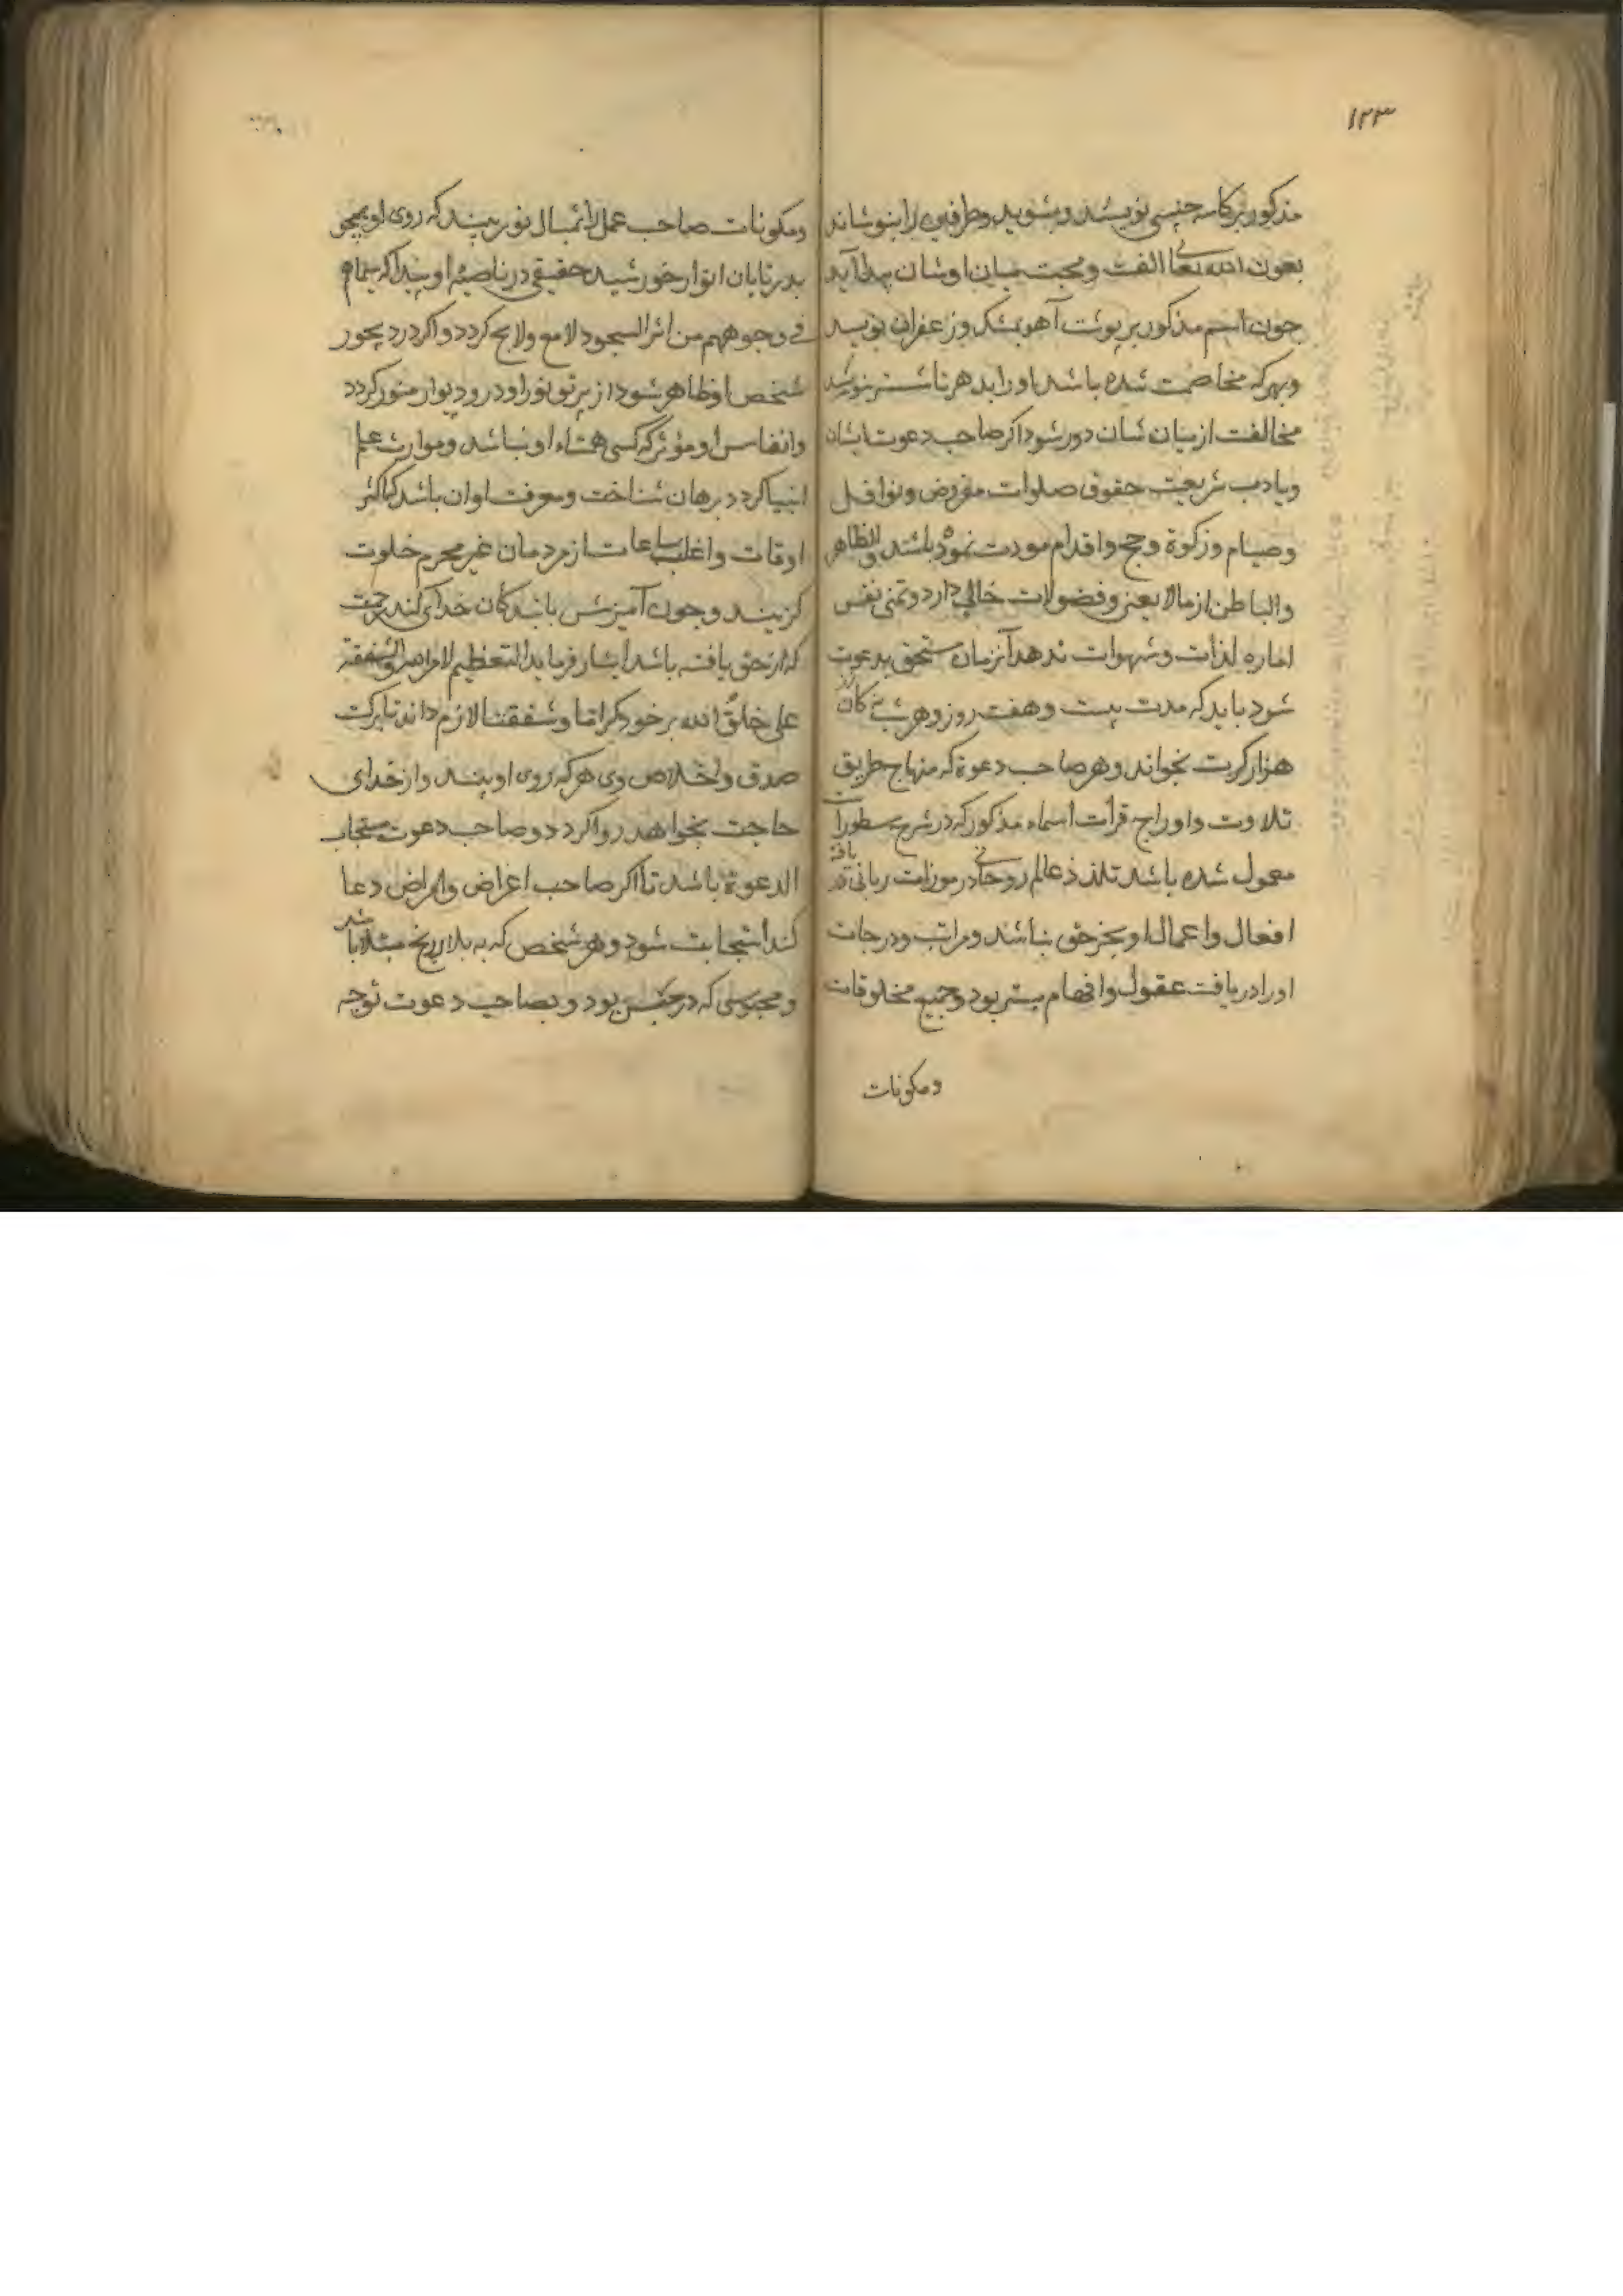 ۱۲۳
مذکور بر کاسه چینی نویسند و بشوید و طرفین را بنوشاند
بعون الله تعالی الفت و محبت میان اوشان پیدا آید
چون اسم مذکور بر پوست آهو بمشک و زعفران نویسد
و بهر که مخاصمت شده باشد او را بدهد تا
مخالفت از میان شان دور شود اگر صاحب دعوت ایشان
و بادب شریعت حقوق صلوات مفروض و نوافل
و صیام و زکوة و حج و اقدام مودت نموده باشد و الظاهر
والباطن از مالا یعنی و فضولات خالی دارد و تمنی نفس
اماره لذات و شهوات ندهد آنزمان مستحق بدعوت
شود باید که مدت بیست و هفت روز و هر شبی کان
هزار کرت بخواند و هر صاحب دعوة که منهاج طریق
تلاوت و اوراج قرأت اسماء مذکور که در شرح مسطورات
معمول شده باشد تلذذ عالم روحانی در موزات ربانی یافته
افعال و اعمال او بجز حق نباشد و مراتب و درجات
او را دریافت عقول و افهام بیشتر بود و جمیع مخلوقات
ومکونات
ومکونات صاحب عمل را تمثال نور بیند که روی او همچو
بدر تابان انوار خورشید حقیقی در ناصیهٔ او پیدا که سیماهم
فی وجوههم من اثر السجود لامع و لایح کردد و اکر در دیجور
شخص او ظاهر شود از پرتو نور او در و دیوار منور کردد
و انفاس او مؤثر که کسی همتاء او نباشد و موارث علم
انبیا کردد برهان شناخت و معرفت او ان باشد که اکثر
اوقات و اغلب ساعات از مردمان غیر محرم خلوت
کزیند و چون آمیزش بابندکان خدای کند رحمت
که از حق یافته باشد ایثار فرماید التعظیم لامرالله والشفقة
علی خلق الله بر خود کراما و شفقتا لازم داند تا برکت
صدق و اخلاص وی هر که روی او بیند و از خدای
حاجت بخواهد روا کردد و صاحب دعوت مستجاب
الدعوة باشد تا اکر صاحب اغراض و امراض دعا
کند استجابت شود و هر شخص که به بلا و رنج مبتلا باشد
و محبوسی که در حبس بود و بصاحب دعوت توجه